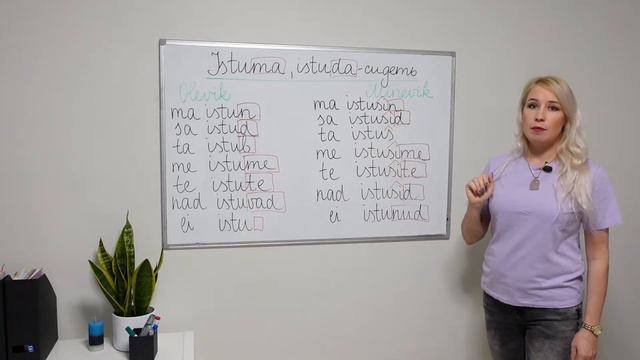 Istuma, istuda - сидеть
Olevik
ma istun
sa istud
ta istub
me istume
te istute
nad istuvad
ei istu
Minevik
ma istusin
sa istusid
ta istus
me istusime
te istusite
nad istusid
ei istunud